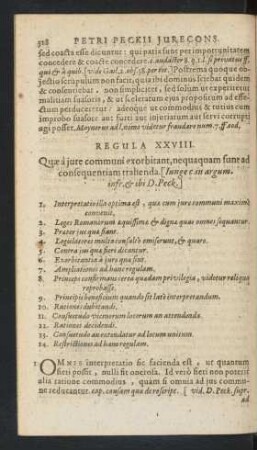 328 PETRI PECKII JURECONS.
sed coacte esse dicuntur: qui patiuntur per importunitatem
concedere & coacte concedere. l. an
qui & à quib. [vide Gail. 2. obs. Postremâ quoque
jectio scrupulum non facit, quia ibi dicebat quidem
& consentiebat, non simpliciter, sed ut experiretur
malitiam suasoris, & ut sceleratum ejus propositum ad effe-
ctum perduceretur: adeoque ut commodius & tutius cum
improbo fortassis aut furti aut injuriarum aut servi corrupti
agi posset. num. 7. ff. eod.
REGULA XXVIII.
Quæ à jure communi exorbitant, nequaquam sunt ad
consequentiam trahenda. [Iunge c. in argum.
infr. & ibi D. Peck.]
1. Interpretatio illa optima est, qua cum jure communi maximè
convenit.
2. Leges Romanorum æquissimæ & dignæ quas omnes sequantur.
3. Præter jus quæ fiant.
4. Legislatores multa consultò omiserunt, & quare.
5. Contra jus quæ fieri dicantur.
6. Exorbitantia à jure quæ sint.
7. Ampliationes ad hanc regulam.
8. Princeps confirmans circa quædam privilegia, videtur reliqua
reprobasse.
9. Principis beneficium quando sit latè interpretandum.
10. Rationes dubitandi.
11. Consuetudo vicinorum locorum an attendenda.
12. Rationes decidendi.
13. Consuetudo an extendatur ad locum unitum.
14. Restrictiones ad hanc regulam.
1 OMNIS interpretatio sic facienda est, ut quantum
fieri possit, nulli fit onerosa. Id verò fieri non potest
alia ratione commodius, quàm si omnia ad jus commu-
ne reducantur. cap. causam quæ de rescript. [vid. D. Peck. supr.
ad